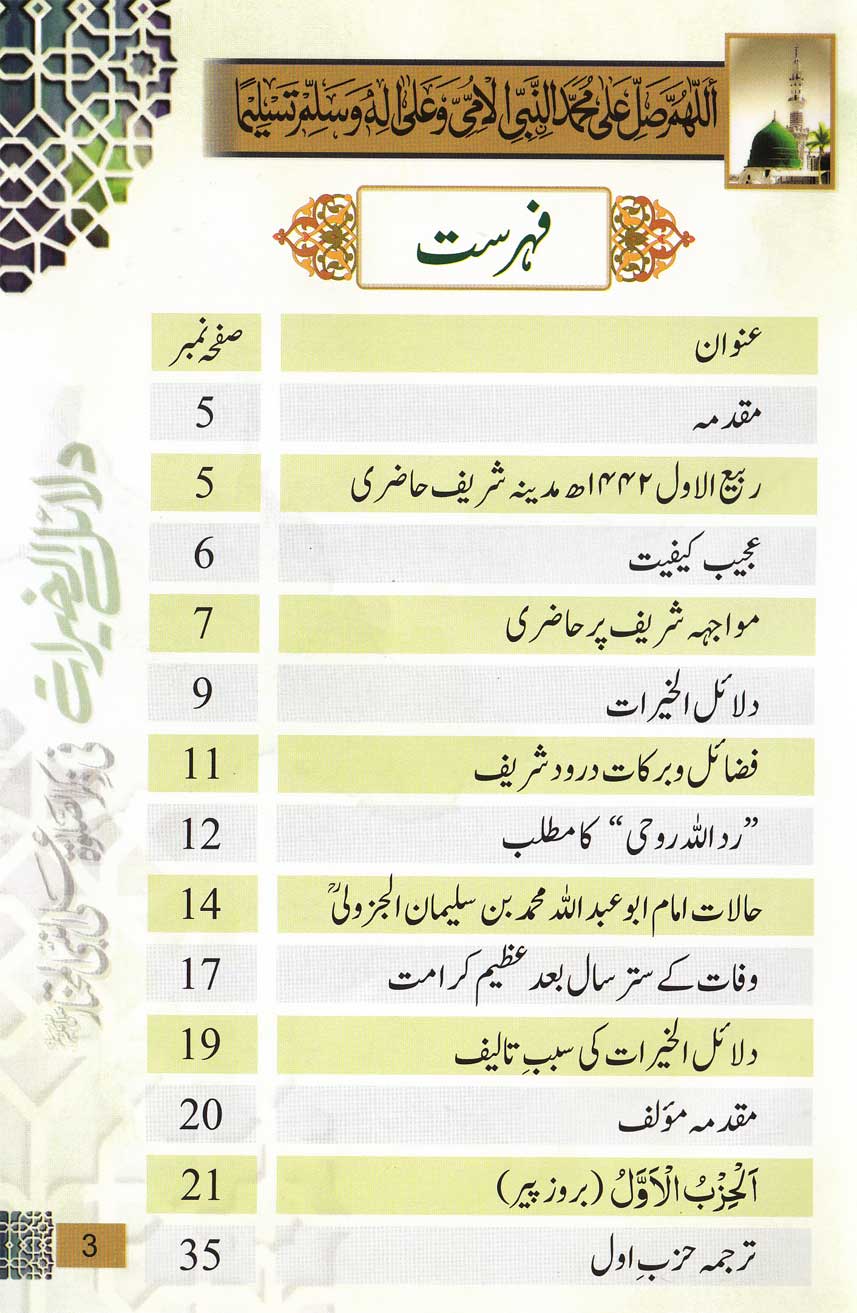 اَللّٰهُمَّ صَلِّ عَلٰى مُحَمَّدِ النَّبِيِّ الْاُمِّيِّ وَعَلٰى اٰلِهٖ وَسَلِّمْ تَسْلِيْمًا
فہرست
عنوان صفحہ نمبر
مقدمہ 5
ربیع الاول ۱۴۴۲ھ مدینہ شریف حاضری 5
عجیب کیفیت 6
مواجہہ شریف پر حاضری 7
دلائل الخیرات 9
فضائل و برکات درود شریف 11
”رد اللہ روحی“ کا مطلب 12
حالات امام ابو عبد اللہ محمد بن سلیمان الجزولیؒ 14
وفات کے ستر سال بعد عظیم کرامت 17
دلائل الخیرات کی سببِ تالیف 19
مقدمہ مؤلف 20
اَلْحِزْبُ الْاَوَّلُ (بروز پیر) 21
ترجمہ حزبِ اول 35
دلائل الخیرات
3